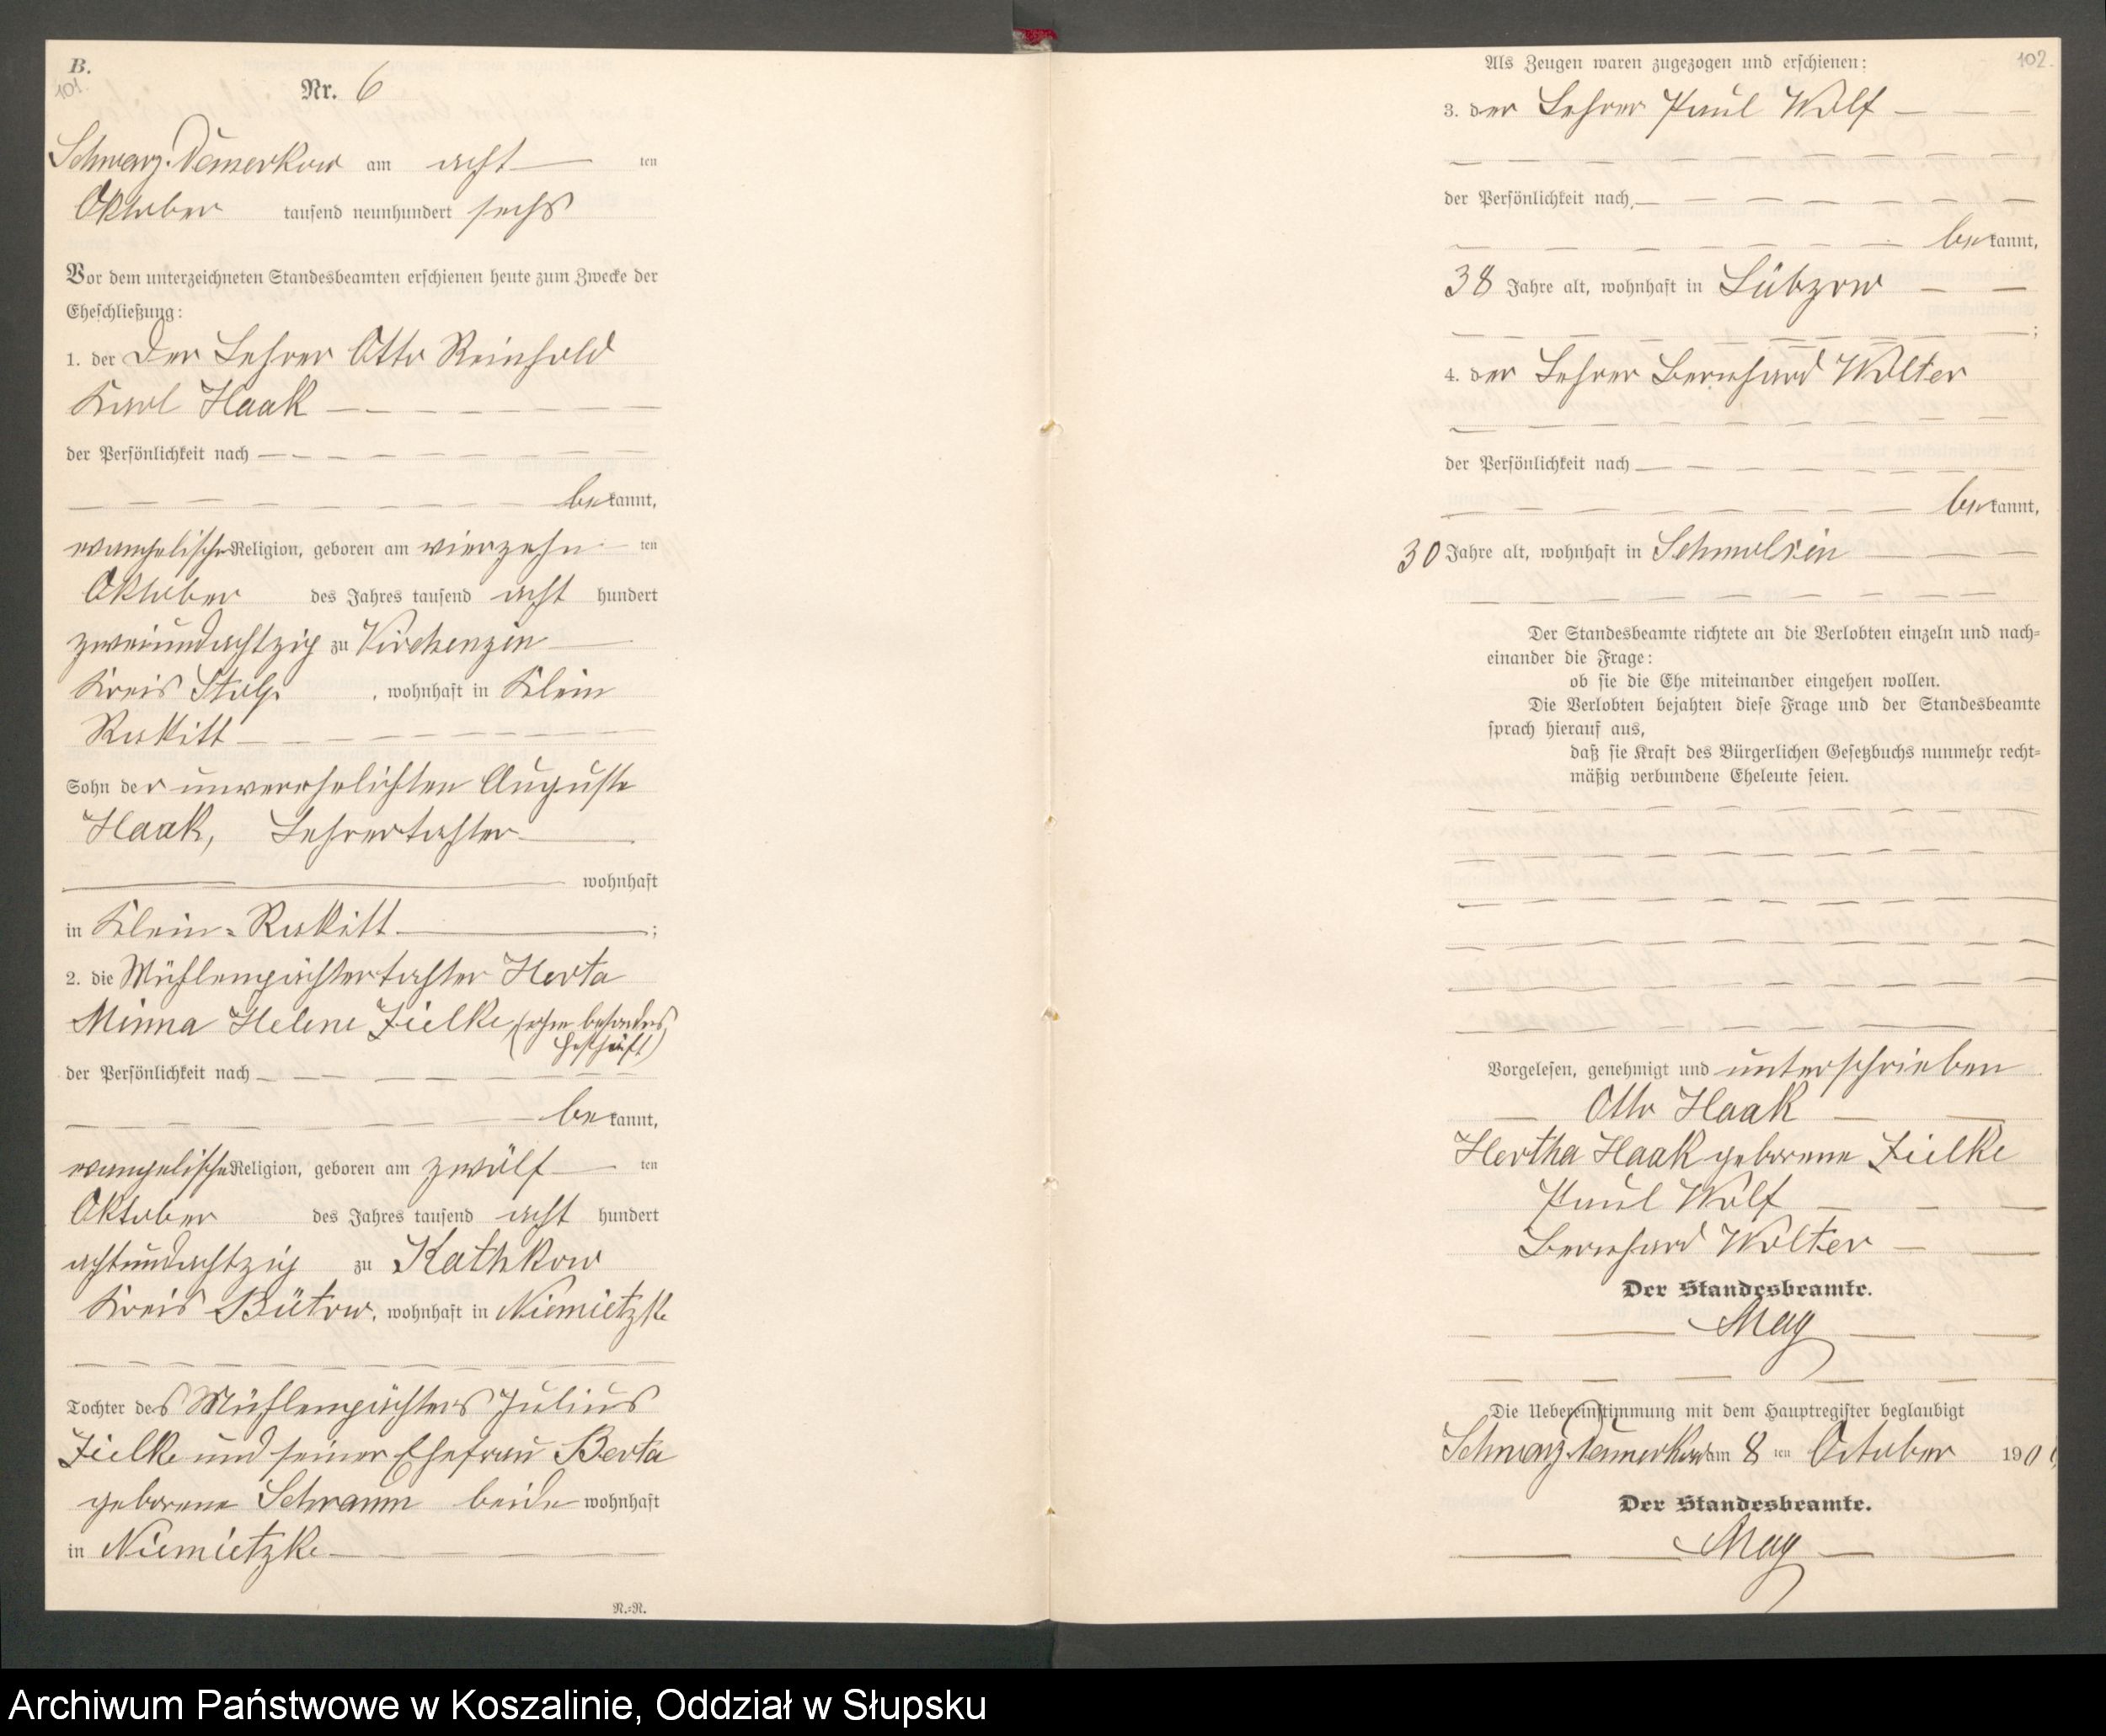 B.
101.
Nr. 6
Schwarz-Damerkow am acht ten
Oktober tausend neunhundert sechs
Vor dem unterzeichneten Standesbeamten erschienen heute zum Zwecke der
Eheschließung:
1. der Der Lehrer Otto Reinhold
Karl Haak
der Persönlichkeit nach
bekannt,
evangelischer Religion, geboren am vierzehn ten
Oktober des Jahres tausend acht hundert
zweiundachtzig zu Virchenzin
Kreis Stolp, wohnhaft in Klein
Rakitt
Sohn der unverehelichten Auguste
Haak, Lehrertochter
wohnhaft
in Klein-Rakitt ;
2. die Mühlenpächtertochter Herta
Minna Helene Zielke, (ohne besonderes
Geschäft)
der Persönlichkeit nach
bekannt,
evangelischer Religion, geboren am zwölf ten
Oktober des Jahres tausend acht hundert
achtundachtzig zu Kathkow
Kreis Bütow, wohnhaft in Niemietzke
Tochter des Mühlenpächters Julius
Zielke und seiner Ehefrau Berta
geborene Schramm beide wohnhaft
in Niemietzke
R.=R.
102.
Als Zeugen waren zugezogen und erschienen:
3. der Lehrer Paul Wolf
der Persönlichkeit nach,
bekannt,
38 Jahre alt, wohnhaft in Lübzow
;
4. der Lehrer Bernhard Wolter
der Persönlichkeit nach
bekannt,
30 Jahre alt, wohnhaft in Schmolsin
Der Standesbeamte richtete an die Verlobten einzeln und nach=
einander die Frage:
ob sie die Ehe miteinander eingehen wollen.
Die Verlobten bejahten diese Frage und der Standesbeamte
sprach hierauf aus,
daß sie Kraft des Bürgerlichen Gesetzbuchs nunmehr recht=
mäßig verbundene Eheleute seien.
Vorgelesen, genehmigt und unterschrieben
Otto Haak
Hertha Haak geborene Zielke
Paul Wolf
Bernhard Wolter
Der Standesbeamte.
May
Die Uebereinstimmung mit dem Hauptregister beglaubigt
Schwarz Damerkow am 8 ten October 190
Der Standesbeamte.
May
Archiwum Państwowe w Koszalinie, Oddział w Słupsku